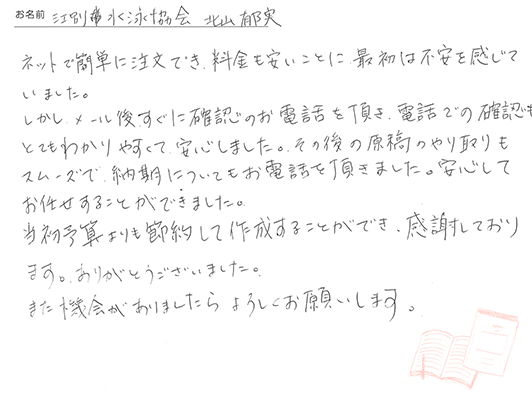 お名前 江別市水泳協会 北山 郁実
ネットで簡単に注文でき、料金も安いことに、最初は不安を感じて
いました。
しかし、メール後すぐに確認のお電話を頂き、電話での確認も
とてもわかりやすくて、安心しました。その後の原稿のやり取りも
スムーズで、納期についてもお電話を頂きました。安心して
お任せすることができました。
当初予算よりも節約して作成することができ、感謝しており
ます。ありがとうございました。
また機会がありましたらよろしくお願いします。